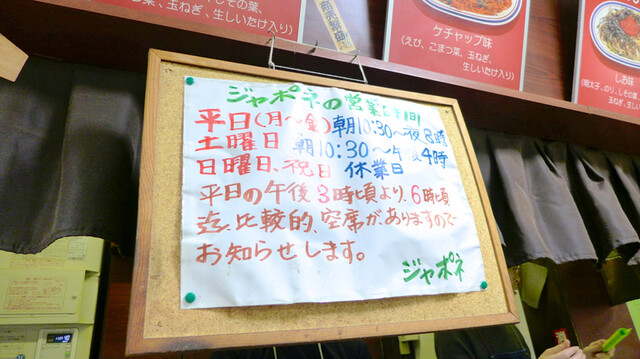 玉ねぎ、生しいたけ入り)
ケチャップ味
(えび、こまつ菜、玉ねぎ、
生しいたけ入り)
しお味
ジャポネの営業時間
平日(月〜金)朝10:30〜夜8時
土曜日 朝10:30〜午後4時
日曜日、祝日 休業日
平日の午後3時頃より、6時頃
迄、比較的、空席が、ありますので
お知らせします。
ジャポネ